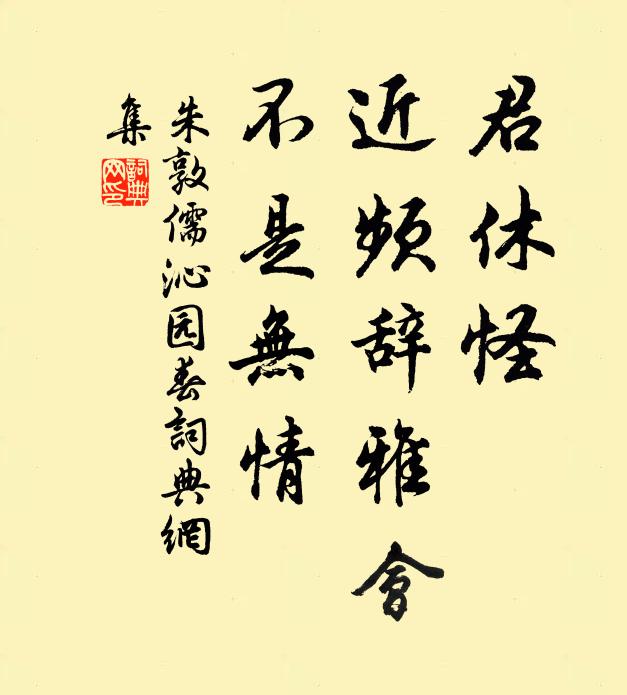 君休怪
近频辞雅會
不是無情
朱敦儒沁园春詞典網
集
詞典
网印